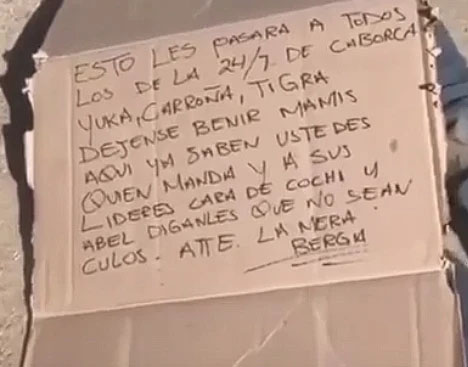 ESTO LES PASARA A TODOS
LOS DE LA 24/7 DE CABORCA
YUKA, CARROÑA, TIGRA
DEJENSE BENIR MAMIS
AQUI YA SABEN USTEDES
QUIEN MANDA Y A SUS
LIDERES CARA DE COCHI Y
ABEL DIGANLES QUE NO SEAN
CULOS. ATTE. LA MERA
BERGA